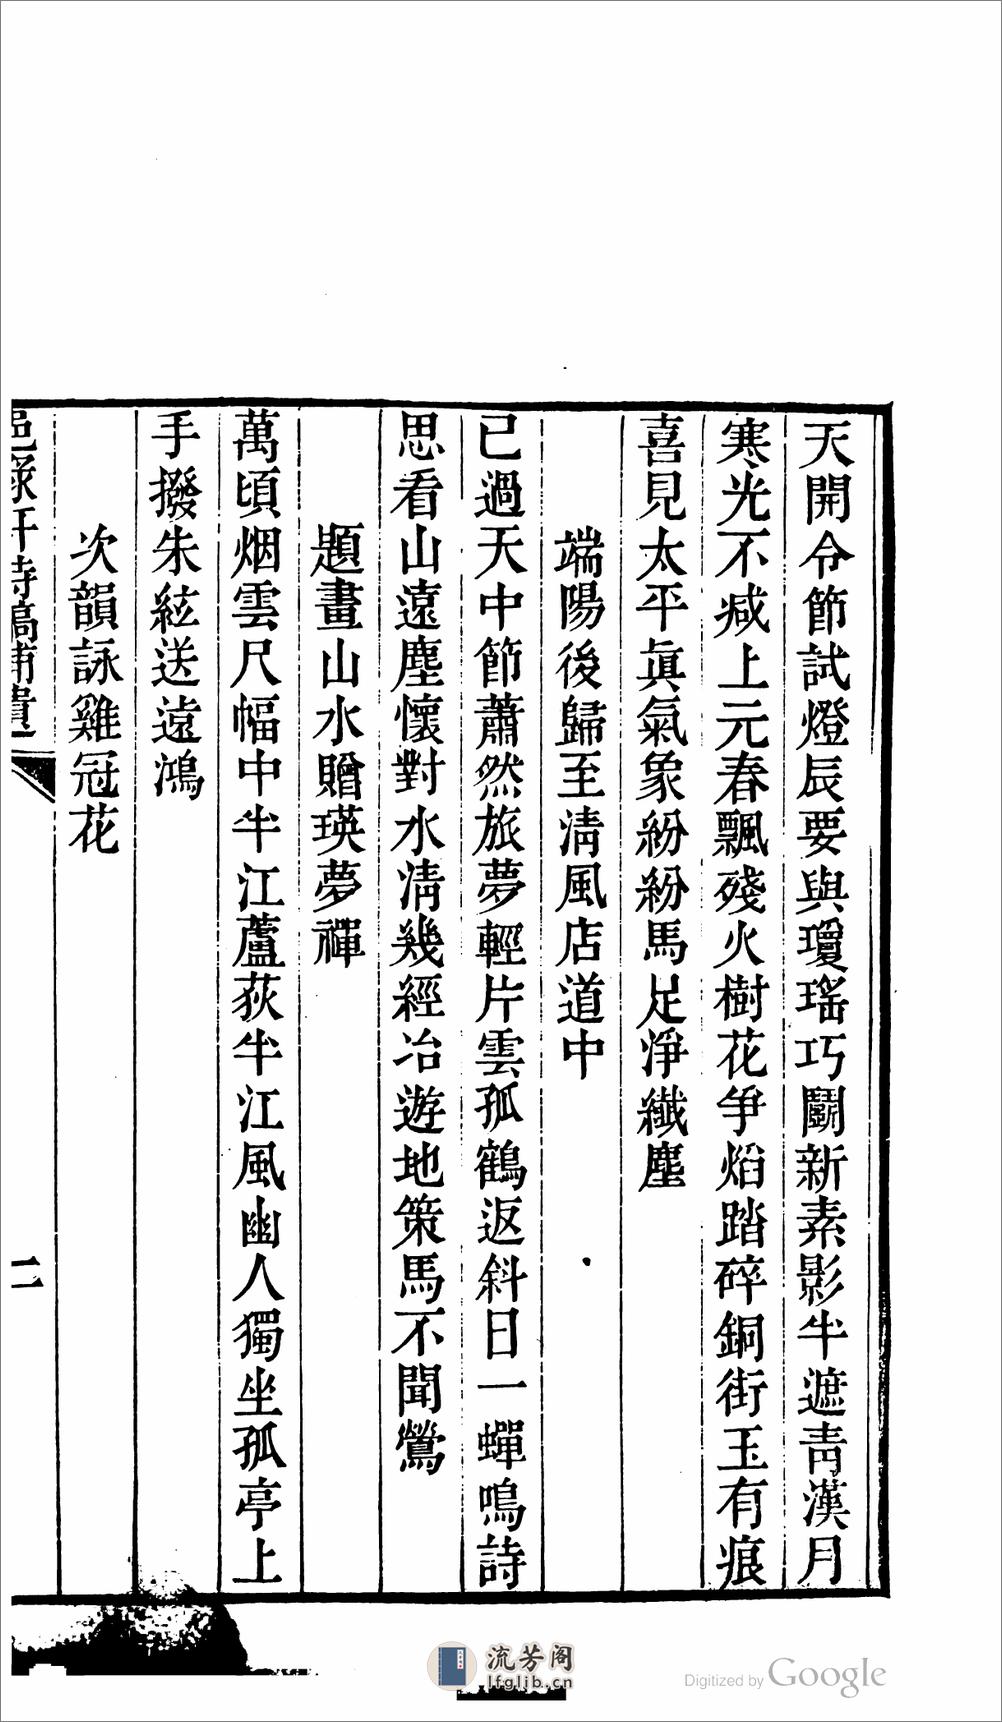 天開令節試燈辰要與瓊瑤巧鬭新素影半遮青漢月
寒光不减上元春飄殘火樹花爭焰踏碎銅街玉有痕
喜見太平眞氣象紛紛馬足淨纖塵
端陽後歸至清風店道中
已過天中節蕭然旅夢輕片雲孤鶴返斜日一蟬鳴詩
思看山遠塵懷對水清幾經冶遊地策馬不聞鶯
題畫山水贈瑛夢禪
萬頃烟雲尺幅中半江蘆荻半江風幽人獨坐孤亭上
手撥朱絃送遠鴻
次韻詠雞冠花
軒詩稿補遺
二
流芳阁
lfglib.cn
Digitized by Google